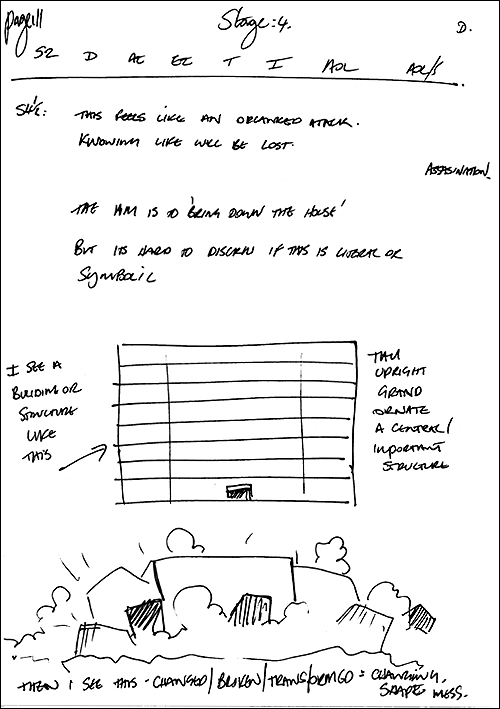 page 11
Stage: 4.
D.
S2 D AE EE T I AOL AOL/S
THIS FEELS LIKE AN ORGANISED ATTACK.
KNOWING LIKE WILL BE LOST.
ASSASINATION.
THE AIM IS TO 'BRING DOWN THE HOUSE'
BUT ITS HARD TO DISCERN IF THIS IS LITERAL OR
SYMBOLIC
I SEE A
BUILDING OR
STRUCTURE
LIKE
THIS
TALL
UPRIGHT
GRAND
ORNATE
A CENTRAL/
IMPORTANT
STRUCTURE
THEN I SEE THIS - CHANGED/BROKEN/TRANSFORMED = CHANGING,
SHAPE MESS.